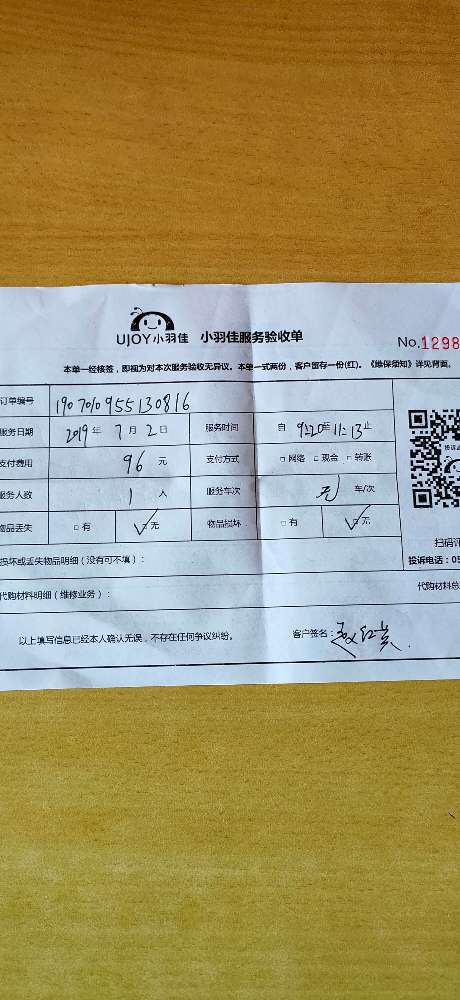 UJOY小羽佳 小羽佳服务验收单
No.1298
本单一经核签，即视为对本次服务验收无异议。本单一式两份，客户留存一份(红)。《维保须知》详见背面。
订单编号 190701095513081 6
服务日期 2019 年 7 月 2 日 服务时间 自 9:20 至 11:13 止
支付费用 96 元 支付方式 □ 网络 □ 现金 □ 转账
服务人数 1 人 服务车次 车/次
物品丢失 □ 有 ☑ 无 物品损坏 □ 有 ☑ 无
扫码评
损坏或丢失物品明细（没有可不填）： 投诉电话：05
代购材料明细（维修业务）： 代购材料总
以上填写信息已经本人确认无误，不存在任何争议纠纷。 客户签名：